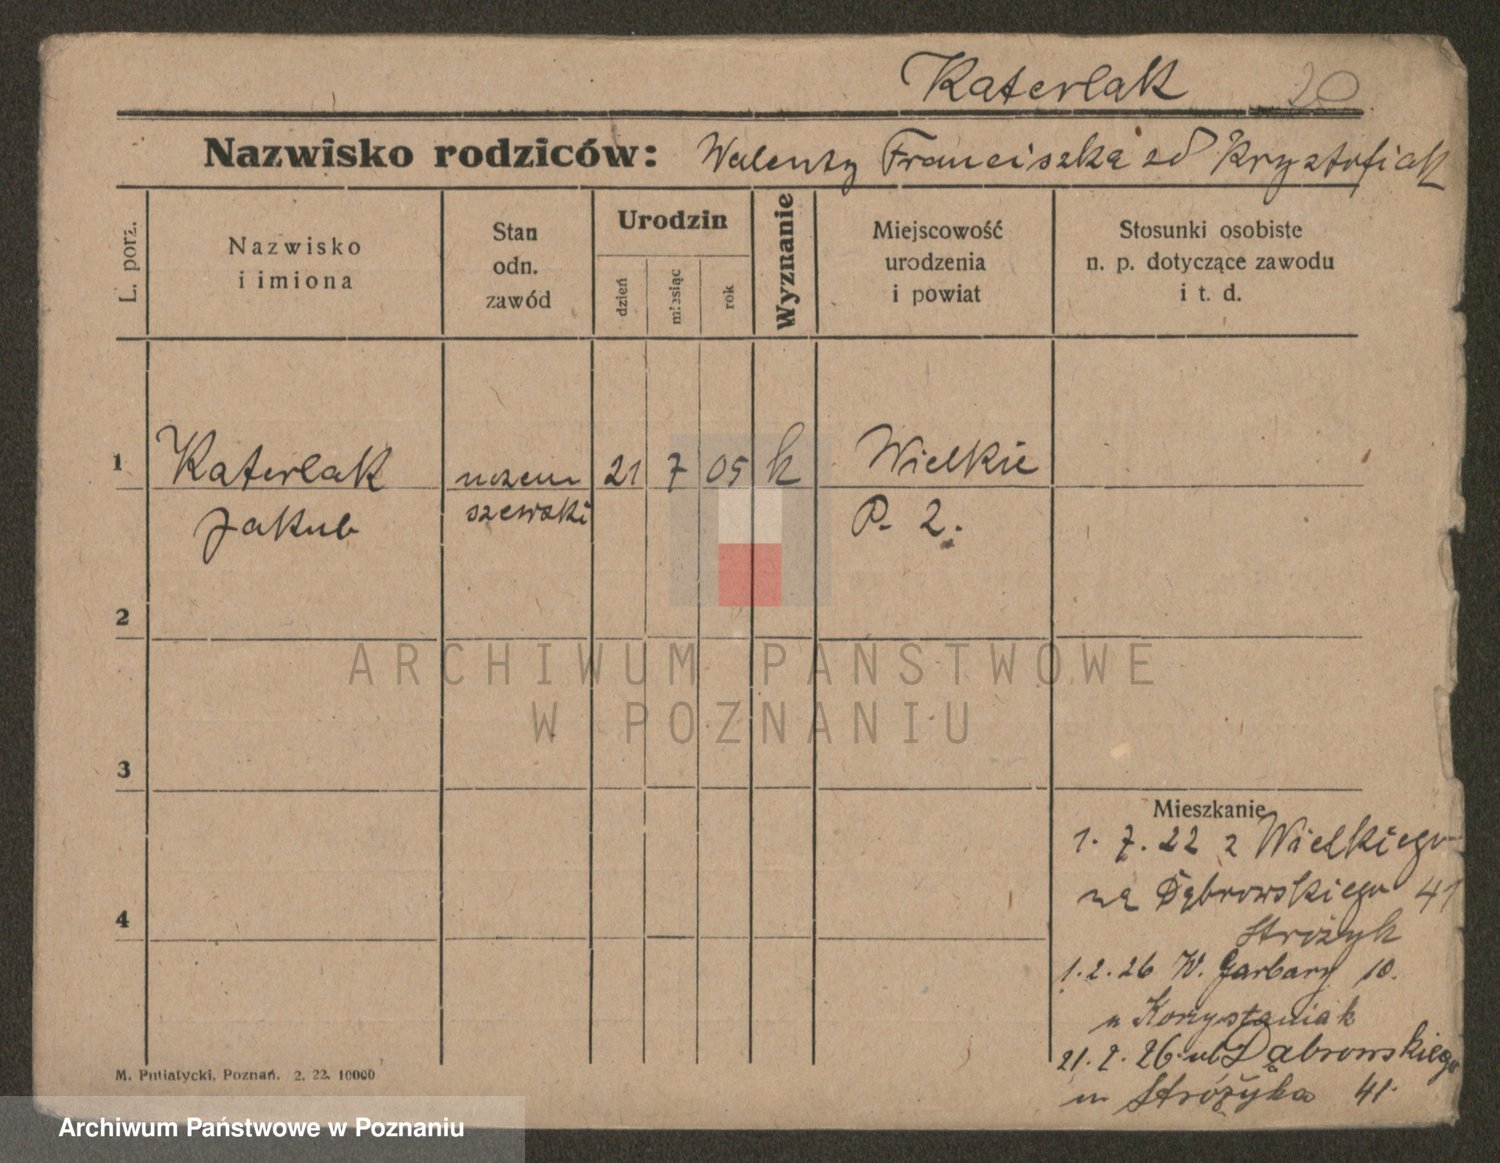 Katerlak 20
Nazwisko rodziców: Walenty Franciszka zd Krysztofiak
L. porz.
Nazwisko
i imiona
Stan
odn.
zawód
Urodzin
dzień
miesiąc
rok
Wyznanie
Miejscowość
urodzenia
i powiat
Stosunki osobiste
n. p. dotyczące zawodu
i t. d.
1 Katerlak 21 7 05 k Wielkie
Jakub szewski P. 2.
2
ARCHIWUM PAŃSTWOWE
W POZNANIU
3
Mieszkanie
1. 7. 22 z Wielkiego
na Dąbrowskiego 41
4
Stróżyk
1. 2. 26 W. Garbary 10.
Korzystaniak
21. 2. 26 ul Dąbrowskiego
Stróżyka 41.
M. Putiatycki, Poznań. 2. 22. 10000
Archiwum Państwowe w Poznaniu